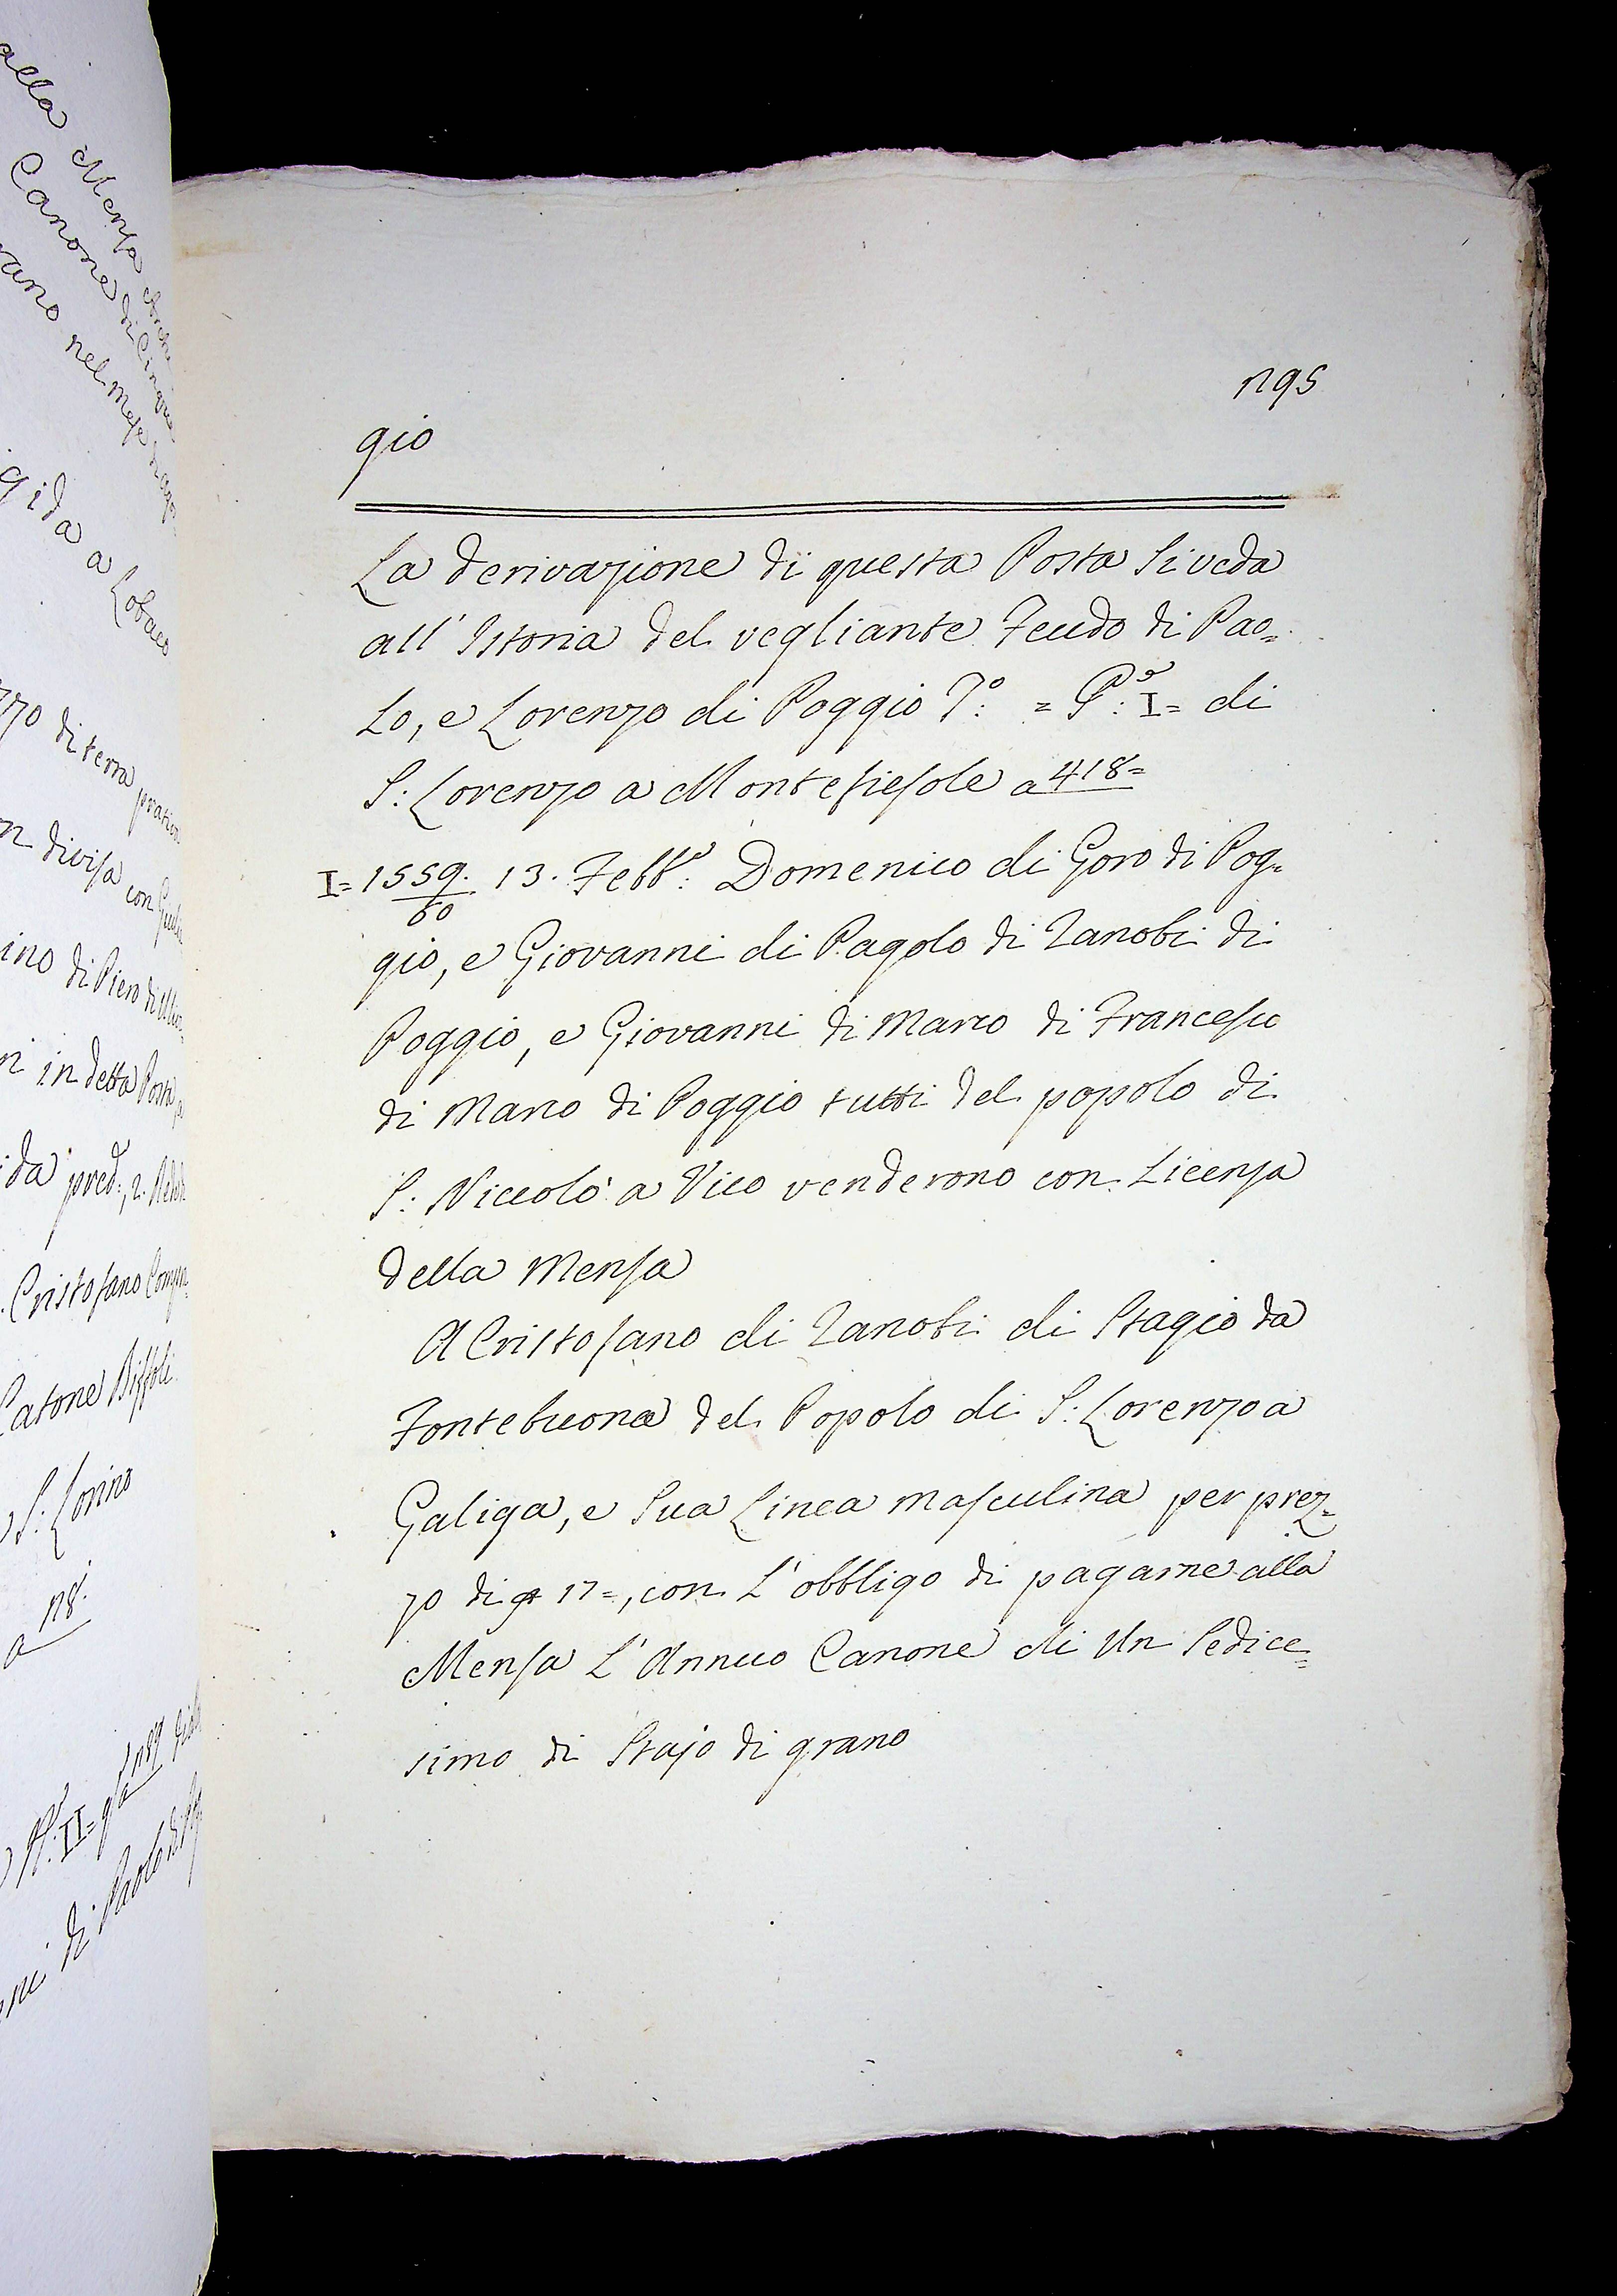 alla Mensa
Canone di Cinque
nel Mese
gida a Lobaco
zzo di terra
divisa con
ino di Piero di
in detta Posta
ida pred:, 2.
Cristofano
Catone Biffoli
S: Lorino
a 118.
II=
di Paolo di
1195
gio
La derivazione di questa Posta si veda
all' Istoria del vegliante Feudo di Pao=
lo, e Lorenzo di Poggio T:º = Pº: I= di
S: Lorenzo a Montefiesole a 418=
I= 1559. 13. Febbº: Domenico di Goro di Pog=
60
gio, e Giovanni di Pagolo di Zanobi di
Poggio, e Giovanni di Marco di Francesco
di Marco di Poggio tutti del popolo di
S: Niccolò a Vico venderono con Licenza
della Mensa
A Cristofano di Zanobi di Stagio da
Fontebuona del Popolo di S: Lorenzo a
Galiga, e Sua Linea masculina per prez=
zo di 17=, con L'obbligo di pagarne alla
Mensa L'Annuo Canone di Un Sedice=
simo di Stajo di grano